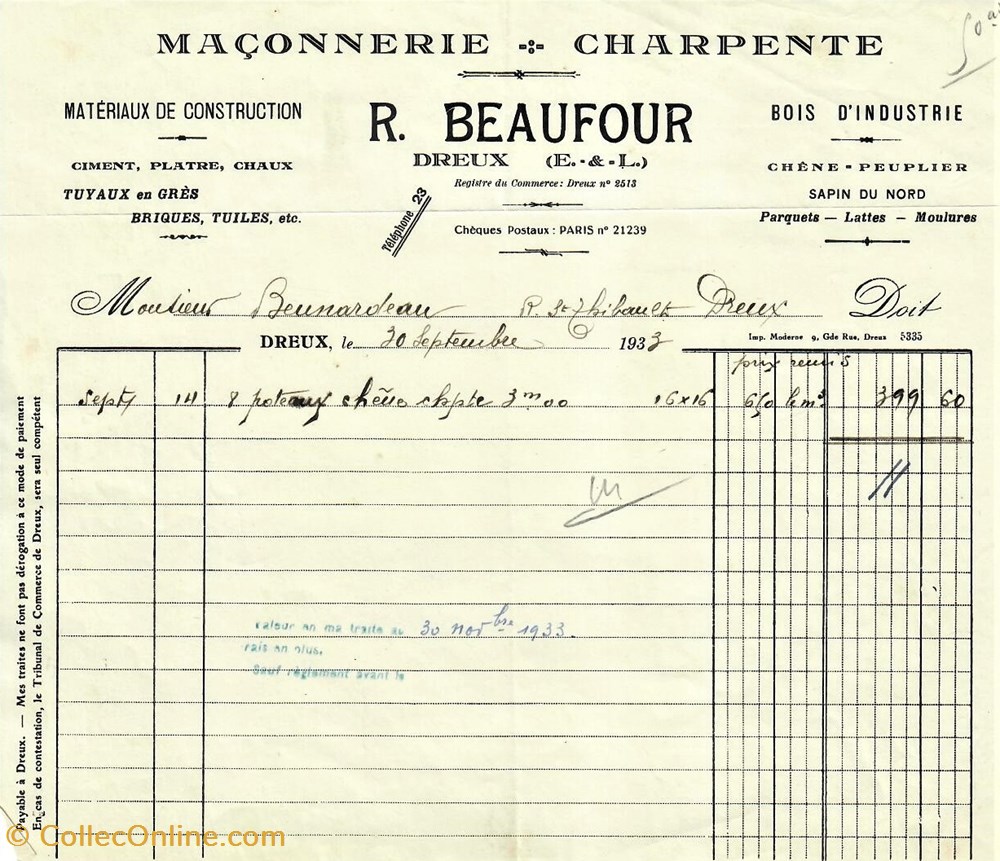 MAÇONNERIE CHARPENTE
50
MATÉRIAUX DE CONSTRUCTION
CIMENT, PLATRE, CHAUX
TUYAUX en GRÈS
BRIQUES, TUILES, etc.
R. BEAUFOUR
DREUX (E.-&-L.)
Registre du Commerce: Dreux nº 2513
Téléphone 23
Chèques Postaux : PARIS nº 21239
BOIS D'INDUSTRIE
CHÊNE - PEUPLIER
SAPIN DU NORD
Parquets — Lattes — Moulures
Monsieur Bennardeau R. St Thibault Dreux Doit
DREUX, le 30 Septembre 1933
Imp. Moderne 9, Gde Rue, Dreux 5335
prix remis
Sept 14 8 poteaux chêne chpte 3m00 16x16 650 le m3 399 60
valeur en ma traite au 30 novbre 1933.
rais en plus.
Sauf règlement avant le
Payable à Dreux. — Mes traites ne font pas dérogation à ce mode de paiement
En cas de contestation, le Tribunal de Commerce de Dreux, sera seul compétent
© CollecOnline.com